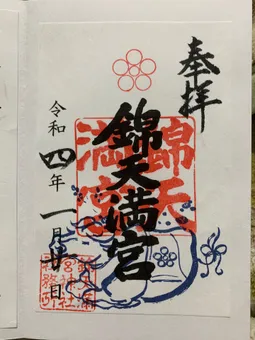 奉拝
錦天満宮
錦天
満宮
令和四年一月廿日